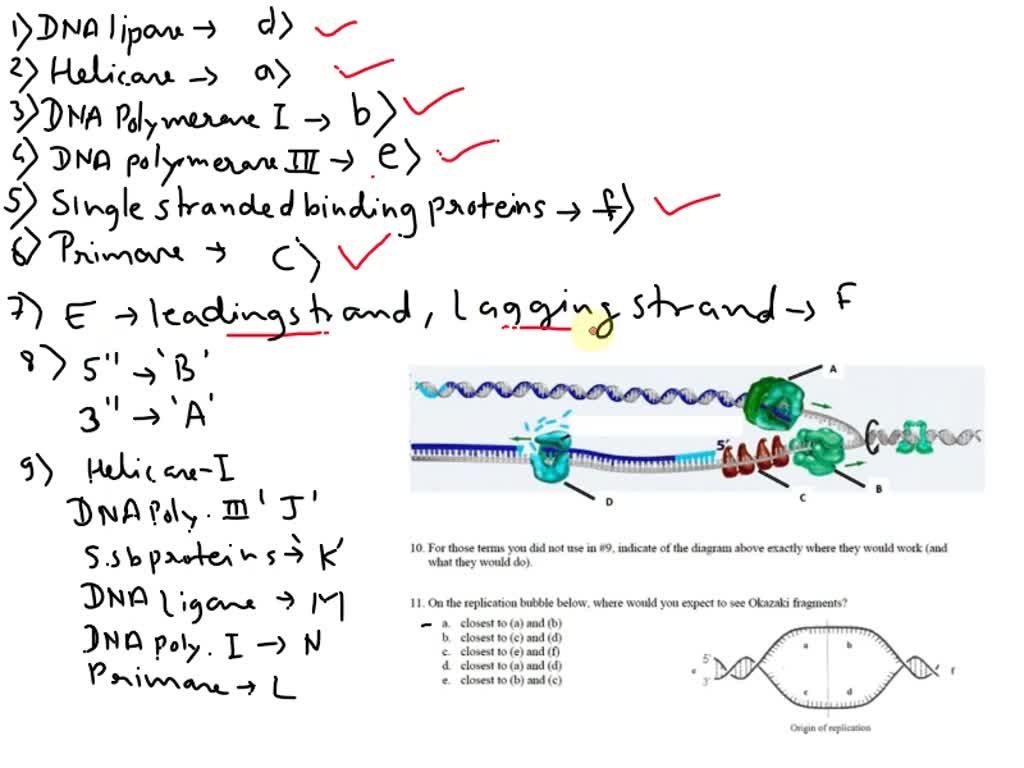 1) DNA lipase → d)
2) Helicase → a)
3) DNA Polymerase I → b)
4) DNA polymerase III → e)
5) Single stranded binding proteins → f)
6) Primase → c)
7) E → leading strand, lagging strand → F
8) 5" → 'B'
3" → 'A'
9) Helicase - I
DNA Poly. III 'J'
S.sb proteins → 'K'
DNA ligase → M
DNA poly. I → N
Primase → L
A
5'
D
C
B
10. For those terms you did not use in #9, indicate of the diagram above exactly where they would work (and
what they would do).
11. On the replication bubble below, where would you expect to see Okazaki fragments?
a. closest to (a) and (b)
b. closest to (c) and (d)
c. closest to (e) and (f)
d. closest to (a) and (d)
e. closest to (b) and (c)
a b
5'
e f
3'
c d
Origin of replication